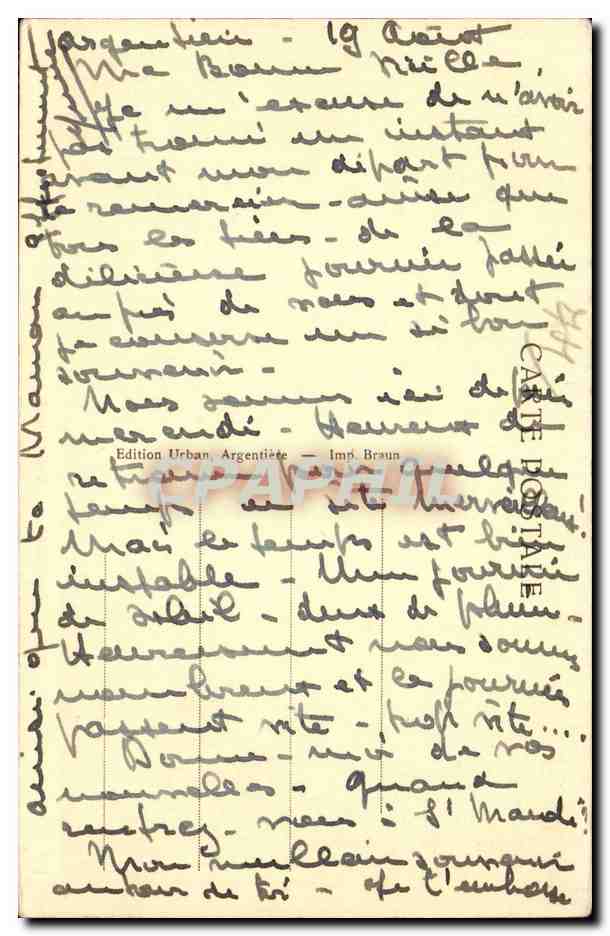 Argentière - 19 Août
Ma Bonne
Je m'excuse de n'avoir
pas trouvé un instant
avant mon départ pour
te remercier - ainsi que
tous les tiens - de la
délicieuse journée passée
auprès de vous et dont
je conserve un si bon
souvenir -
Nous sommes ici depuis
mercredi - Heureux de
retrouver pour quelque
temps ce site merveilleux!
Mais le temps est bien
instable - Une journée
de soleil - deux de pluie -
Heureusement nous sommes
nombreux et les journées
passent vite - trop vite....
Donne-moi de vos
nouvelles - Quand
rentrez-vous à St Mandé?
Mon meilleur souvenir
autour de toi - Je t'embrasse
ainsi que ta Maman affectueusement
CARTE POSTALE
Edition Urban, Argentière — Imp. Braun
CPAPHIL